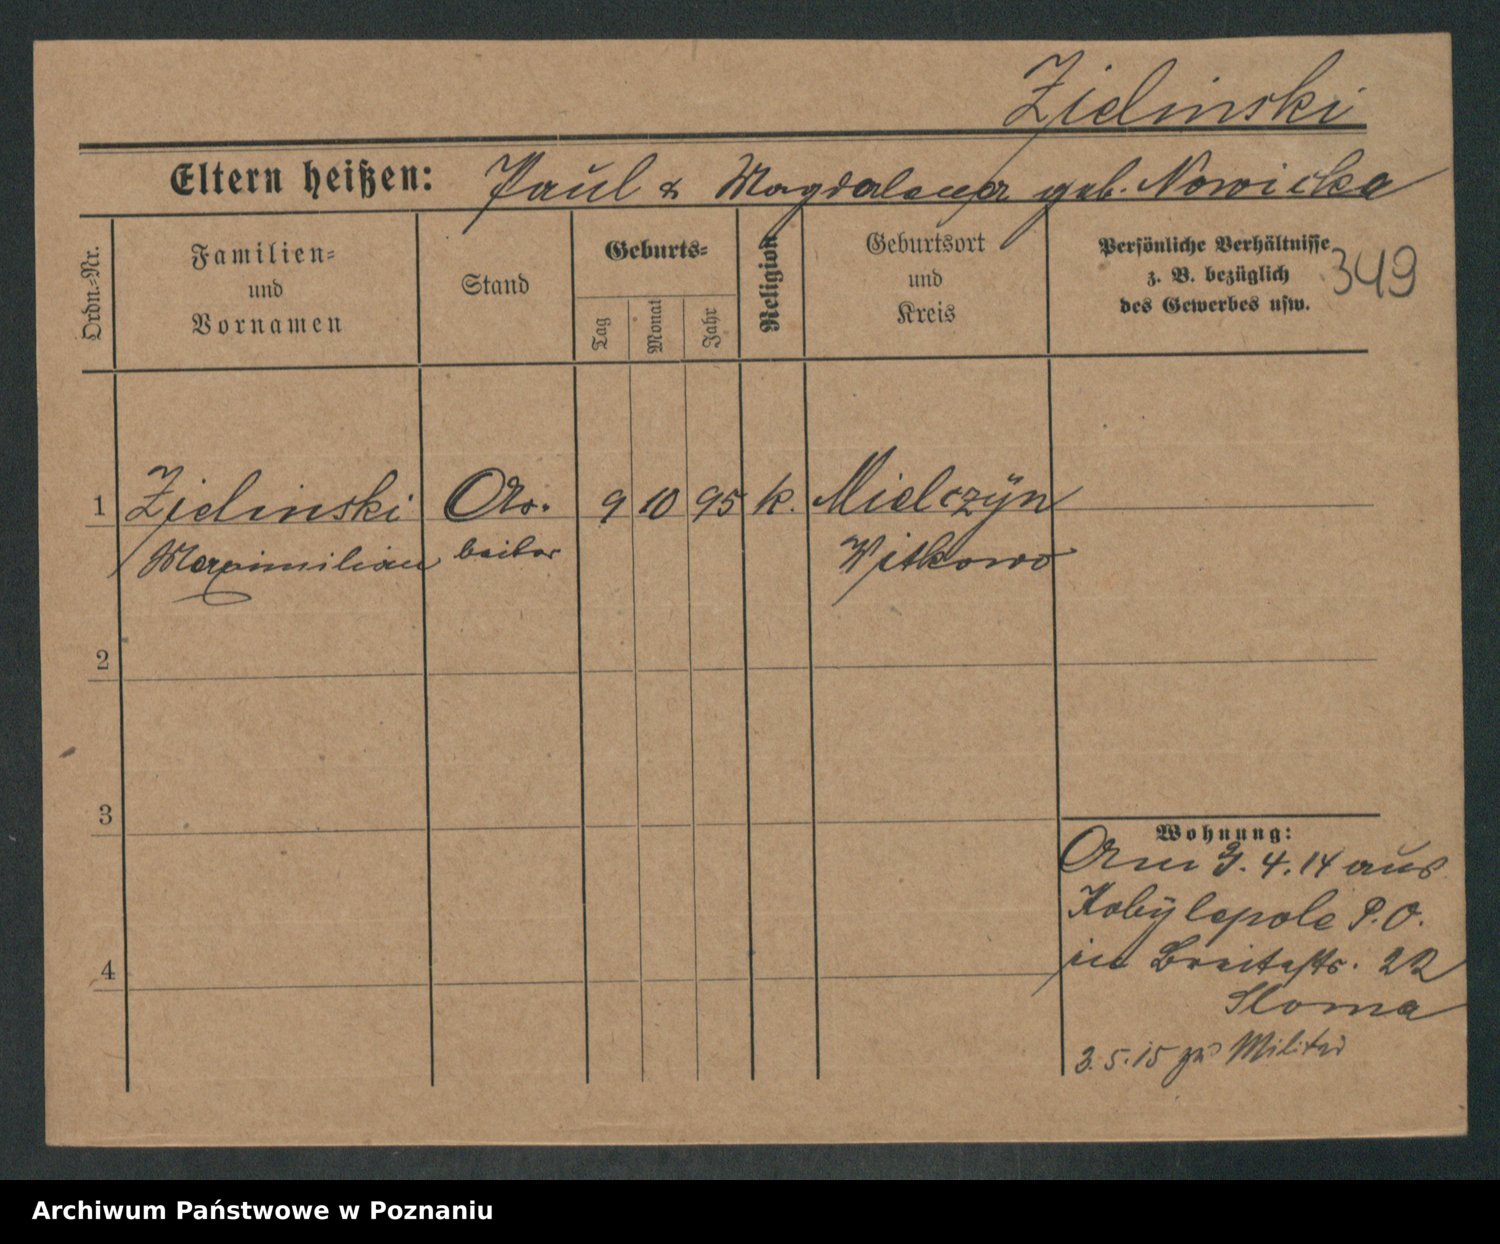 Zielinski
Eltern heißen: Paul & Magdalena geb. Nowicka
Ordn.-Nr.
Familien-
und
Vornamen
Stand
Geburts-
Tag
Monat
Jahr
Religion
Geburtsort
und
Kreis
Persönliche Verhältnisse
z. B. bezüglich
des Gewerbes usw.
349
1 Zielinski Ar- 9 10 95 k. Mielczyn
Maximilian beiter Witkowo
2
3
Wohnung:
Am 3. 4. 14 aus
Kobylepole P. O.
4
in Breitestr. 22
Sloma
3. 5. 15 zu Militär
Archiwum Państwowe w Poznaniu